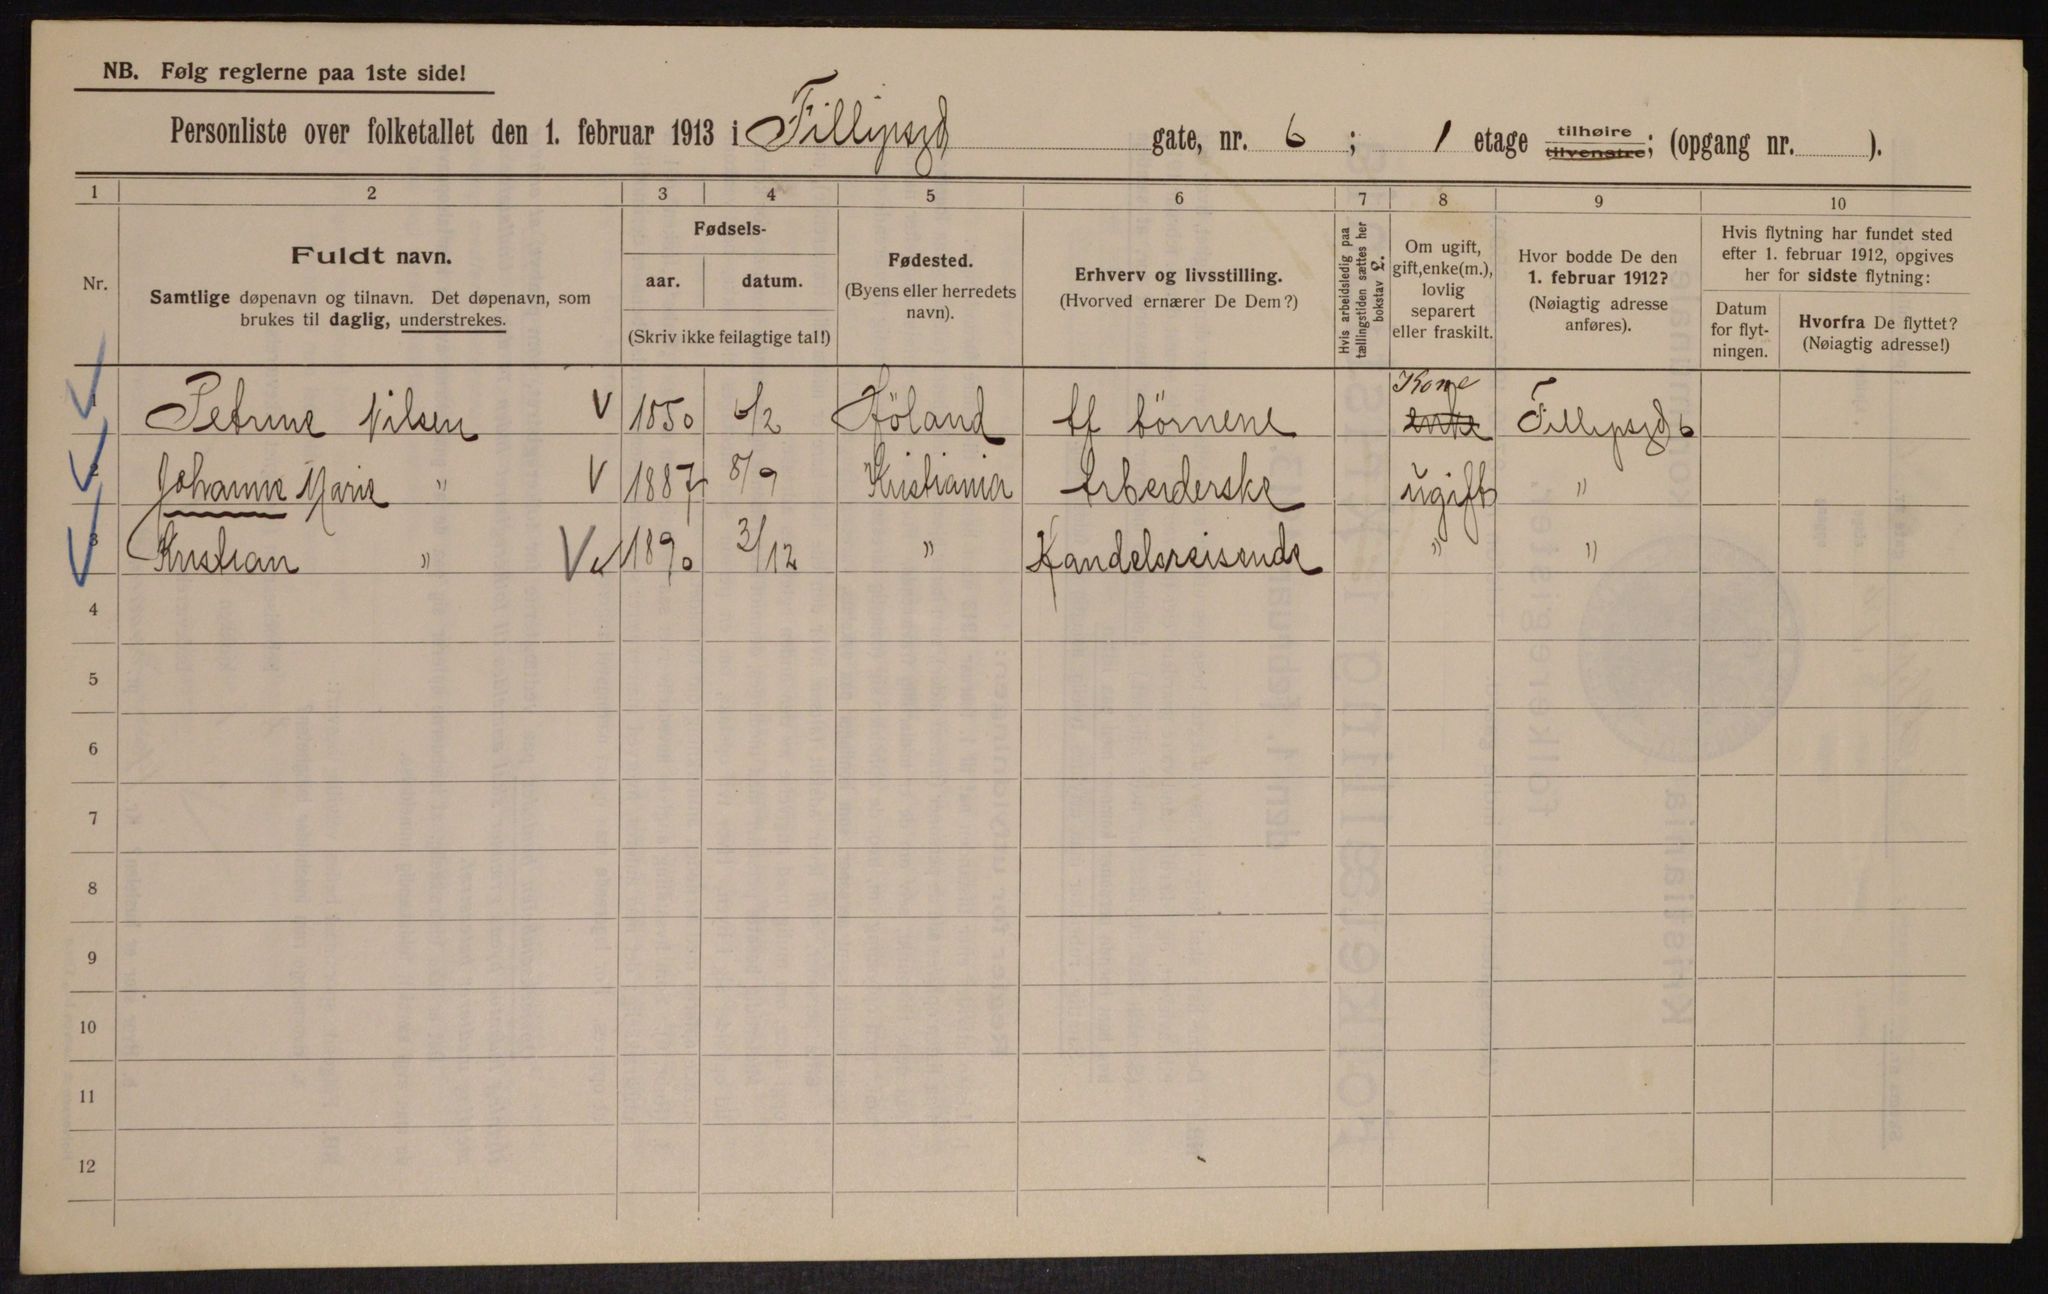 NB. Følg reglerne paa 1ste side!
Personliste over folketallet den 1. februar 1913 i Fillipsgd gate, nr. 6 ; 1 etage tilhøire tilvenstre; (opgang nr. ).
1 2 3 4 5 6 7 8 9 10
Nr.
Fuldt navn.
Samtlige døpenavn og tilnavn. Det døpenavn, som
brukes til daglig, understrekes.
Fødsels-
aar. datum.
(Skriv ikke feilagtige tal!)
Fødested.
(Byens eller herredets
navn).
Erhverv og livsstilling.
(Hvorved ernærer De Dem?)
Hvis arbeidsledig paa
tællingstiden sættes her
bokstav L.
Om ugift,
gift, enke(m.),
lovlig
separert
eller fraskilt.
Hvor bodde De den
1. februar 1912?
(Nøiagtig adresse
anføres).
Hvis flytning har fundet sted
efter 1. februar 1912, opgives
her for sidste flytning:
Datum
for flyt-
ningen.
Hvorfra De flyttet?
(Nøiagtig adresse!)
1 Petrine Nilsen V 1850 6/2 Höland Af börnene Kone enke Fillipsgd 6
2 Johanne Marie " V 1887 8/9 Kristiania Arbeiderske ugift "
3 Kristian " V 1890 3/12 " Handelsreisende " "
4
5
6
7
8
9
10
11
12